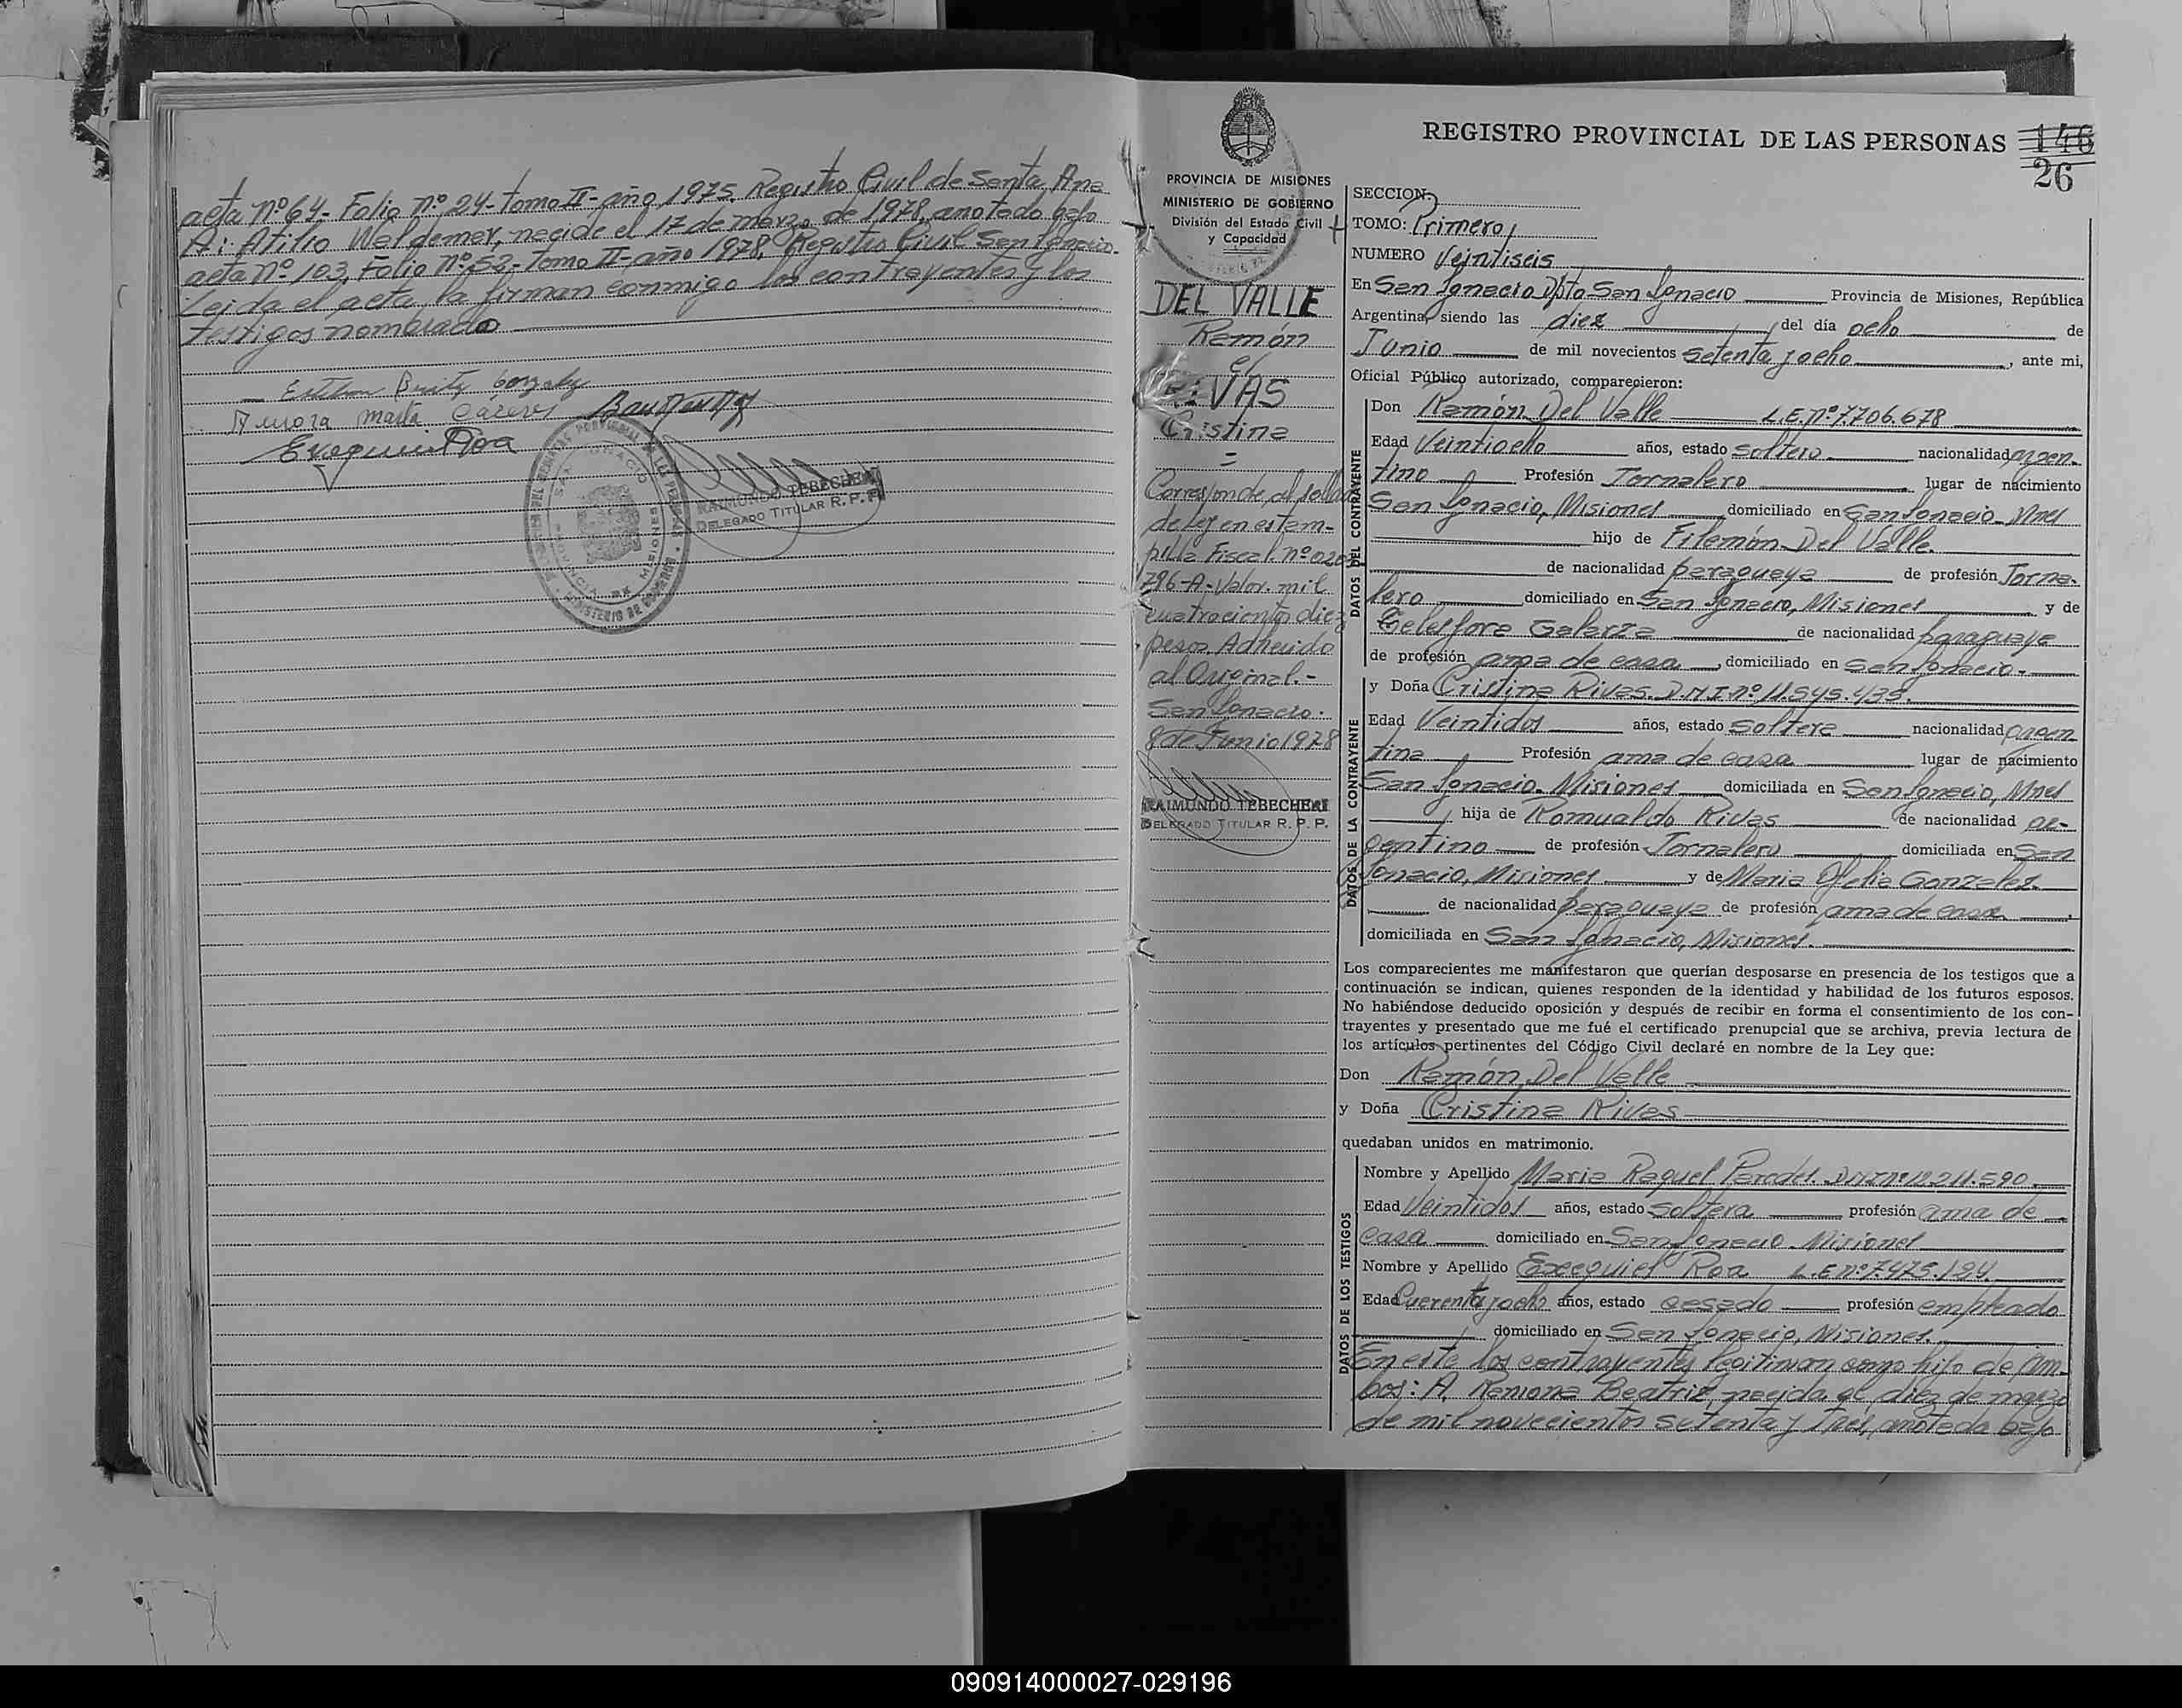 acta nº 64- Folio nº 24- tomo II- año 1975. Registro Civil de Santa Ana
A: Atilio Waldemar, nacido el 17 de marzo de 1978, anotado bajo
acta nº 103. Folio nº 52- Tomo II- año 1978. Registro Civil San Ignacio.
Leida el acta la firman conmigo los contrayentes y los
testigos nombrado
Esteban Benitez Gonzalez
Aurora Marta Caceres
Exequiel Roa
RAIMUNDO TEBECHERI
DELEGADO TITULAR R. P. P.
PROVINCIA DE MISIONES
MINISTERIO DE GOBIERNO
División del Estado Civil
y Capacidad
DEL VALLE
Ramón
c/
RIVAS
Cristina
=
Corresponde al sellado
de ley en estam-
pilla Fiscal. nº 020
796-A- Valor. mil
cuatrocientos diez
pesos. Adherido
al Original.-
San Ignacio.
8 de Junio 1978
RAIMUNDO TEBECHERI
DELEGADO TITULAR R. P. P.
REGISTRO PROVINCIAL DE LAS PERSONAS 146
26
SECCION:
TOMO: Primero
NUMERO Veintiseis
En San Ignacio Dpto San Ignacio Provincia de Misiones, República
Argentina, siendo las diez del día ocho de
Junio de mil novecientos setenta y ocho, ante mi,
Oficial Público autorizado, comparecieron:
DATOS DEL CONTRAYENTE
Don Ramón Del Valle L.E. nº 7.706.678
Edad Veintiocho años, estado soltero nacionalidad argen-
tino Profesión Jornalero lugar de nacimiento
San Ignacio, Misiones domiciliado en San Ignacio- Mnes
hijo de Filemón Del Valle.
de nacionalidad paraguaya de profesión Jorna-
lero domiciliado en San Ignacio, Misiones y de
Celesfora Galarza de nacionalidad paraguaya
de profesión ama de casa, domiciliado en San Ignacio-
DATOS DE LA CONTRAYENTE
y Doña Cristina Rivas. D.N.I. nº 11.545.435.
Edad Veintidos años, estado soltera nacionalidad argen
tina Profesión ama de casa lugar de nacimiento
San Ignacio- Misiones domiciliada en San Ignacio, Mnes
hija de Romualdo Rivas de nacionalidad ar-
gentino de profesión Jornalero domiciliada en San
Ignacio, Misiones y de Maria Ofelia Gonzalez.
de nacionalidad paraguaya de profesión ama de casa
domiciliada en San Ignacio, Misiones.
Los comparecientes me manifestaron que querían desposarse en presencia de los testigos que a
continuación se indican, quienes responden de la identidad y habilidad de los futuros esposos.
No habiéndose deducido oposición y después de recibir en forma el consentimiento de los con-
trayentes y presentado que me fué el certificado prenupcial que se archiva, previa lectura de
los artículos pertinentes del Código Civil declaré en nombre de la Ley que:
Don Ramón Del Valle
y Doña Cristina Rivas
quedaban unidos en matrimonio.
DATOS DE LOS TESTIGOS
Nombre y Apellido Maria Raquel Paredes. DNI nº 12.211.590
Edad Veintidos años, estado soltera profesión ama de
casa domiciliado en San Ignacio- Misiones
Nombre y Apellido Exequiel Roa L.E nº 7.475.194.
Edad Cuarenta y ocho años, estado casado profesión empleado
domiciliado en San Ignacio, Misiones.
En este los contrayentes legitiman como hijo de am-
bos: A, Ramona Beatriz, nacida el diez de marzo
de mil novecientos setenta y tres, anotada bajo
090914000027-029196